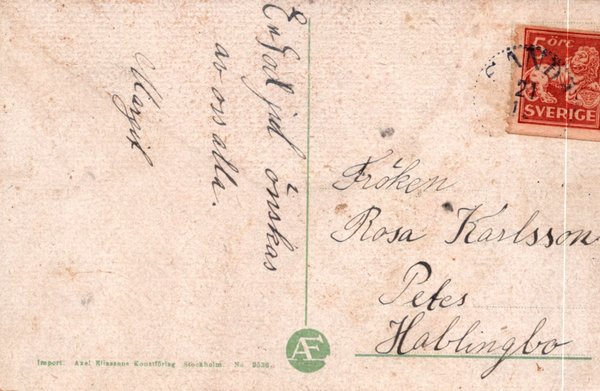 En God jul önskas
av oss alla.
Margit
5 ÖRE
SVERIGE
Fröken
Rosa Karlsson
Petes
Hablingbo
AE
Import: Axel Eliassons Konstförlag Stockholm. No 9536.